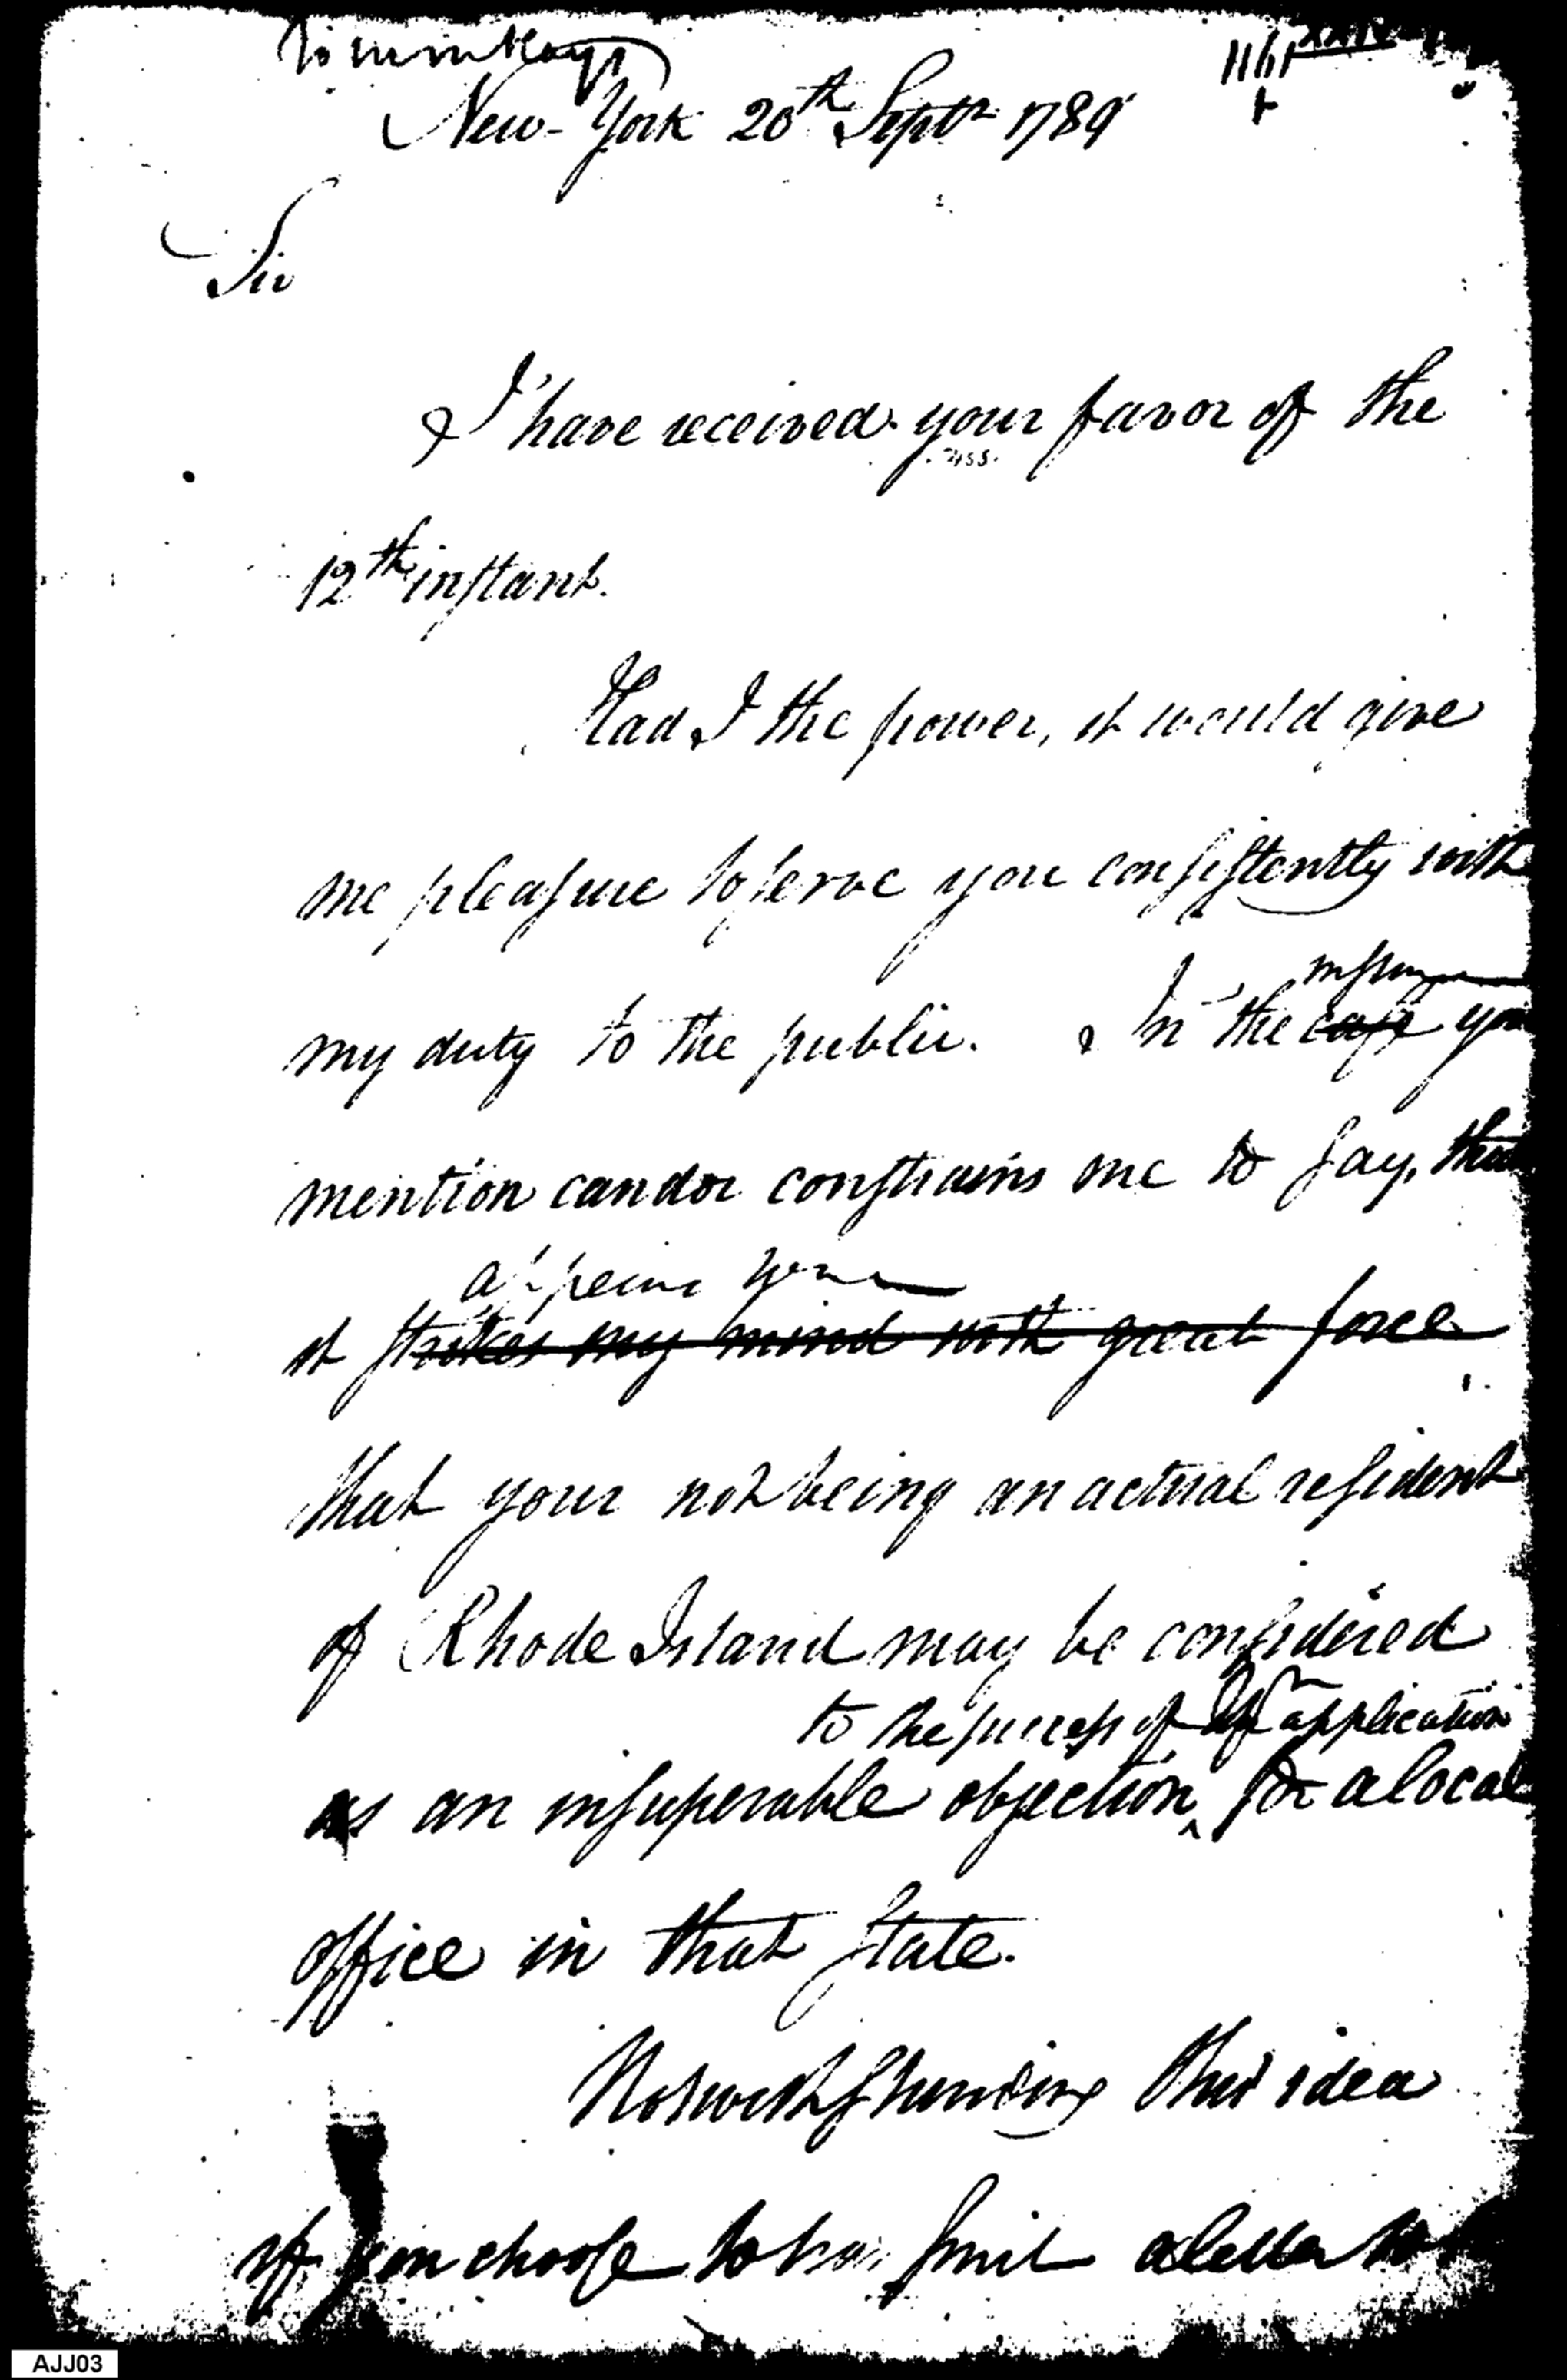 New-York 20th Septr 1789
Sir
I have received your favor of the
12th instant.
Had I the power, it would give
me pleasure to serve you consistently with
my duty to the public. In the case you
instance
mention candor constrains me to say, that
appears to me
it strikes my mind with great force
that your not being an actual resident
of Rhode Island may be considered
to the success of application
as an insuperable objection ^ for a local
office in that State.
Notwithstanding this idea
if you choose to transmit a letter to
AJJ03